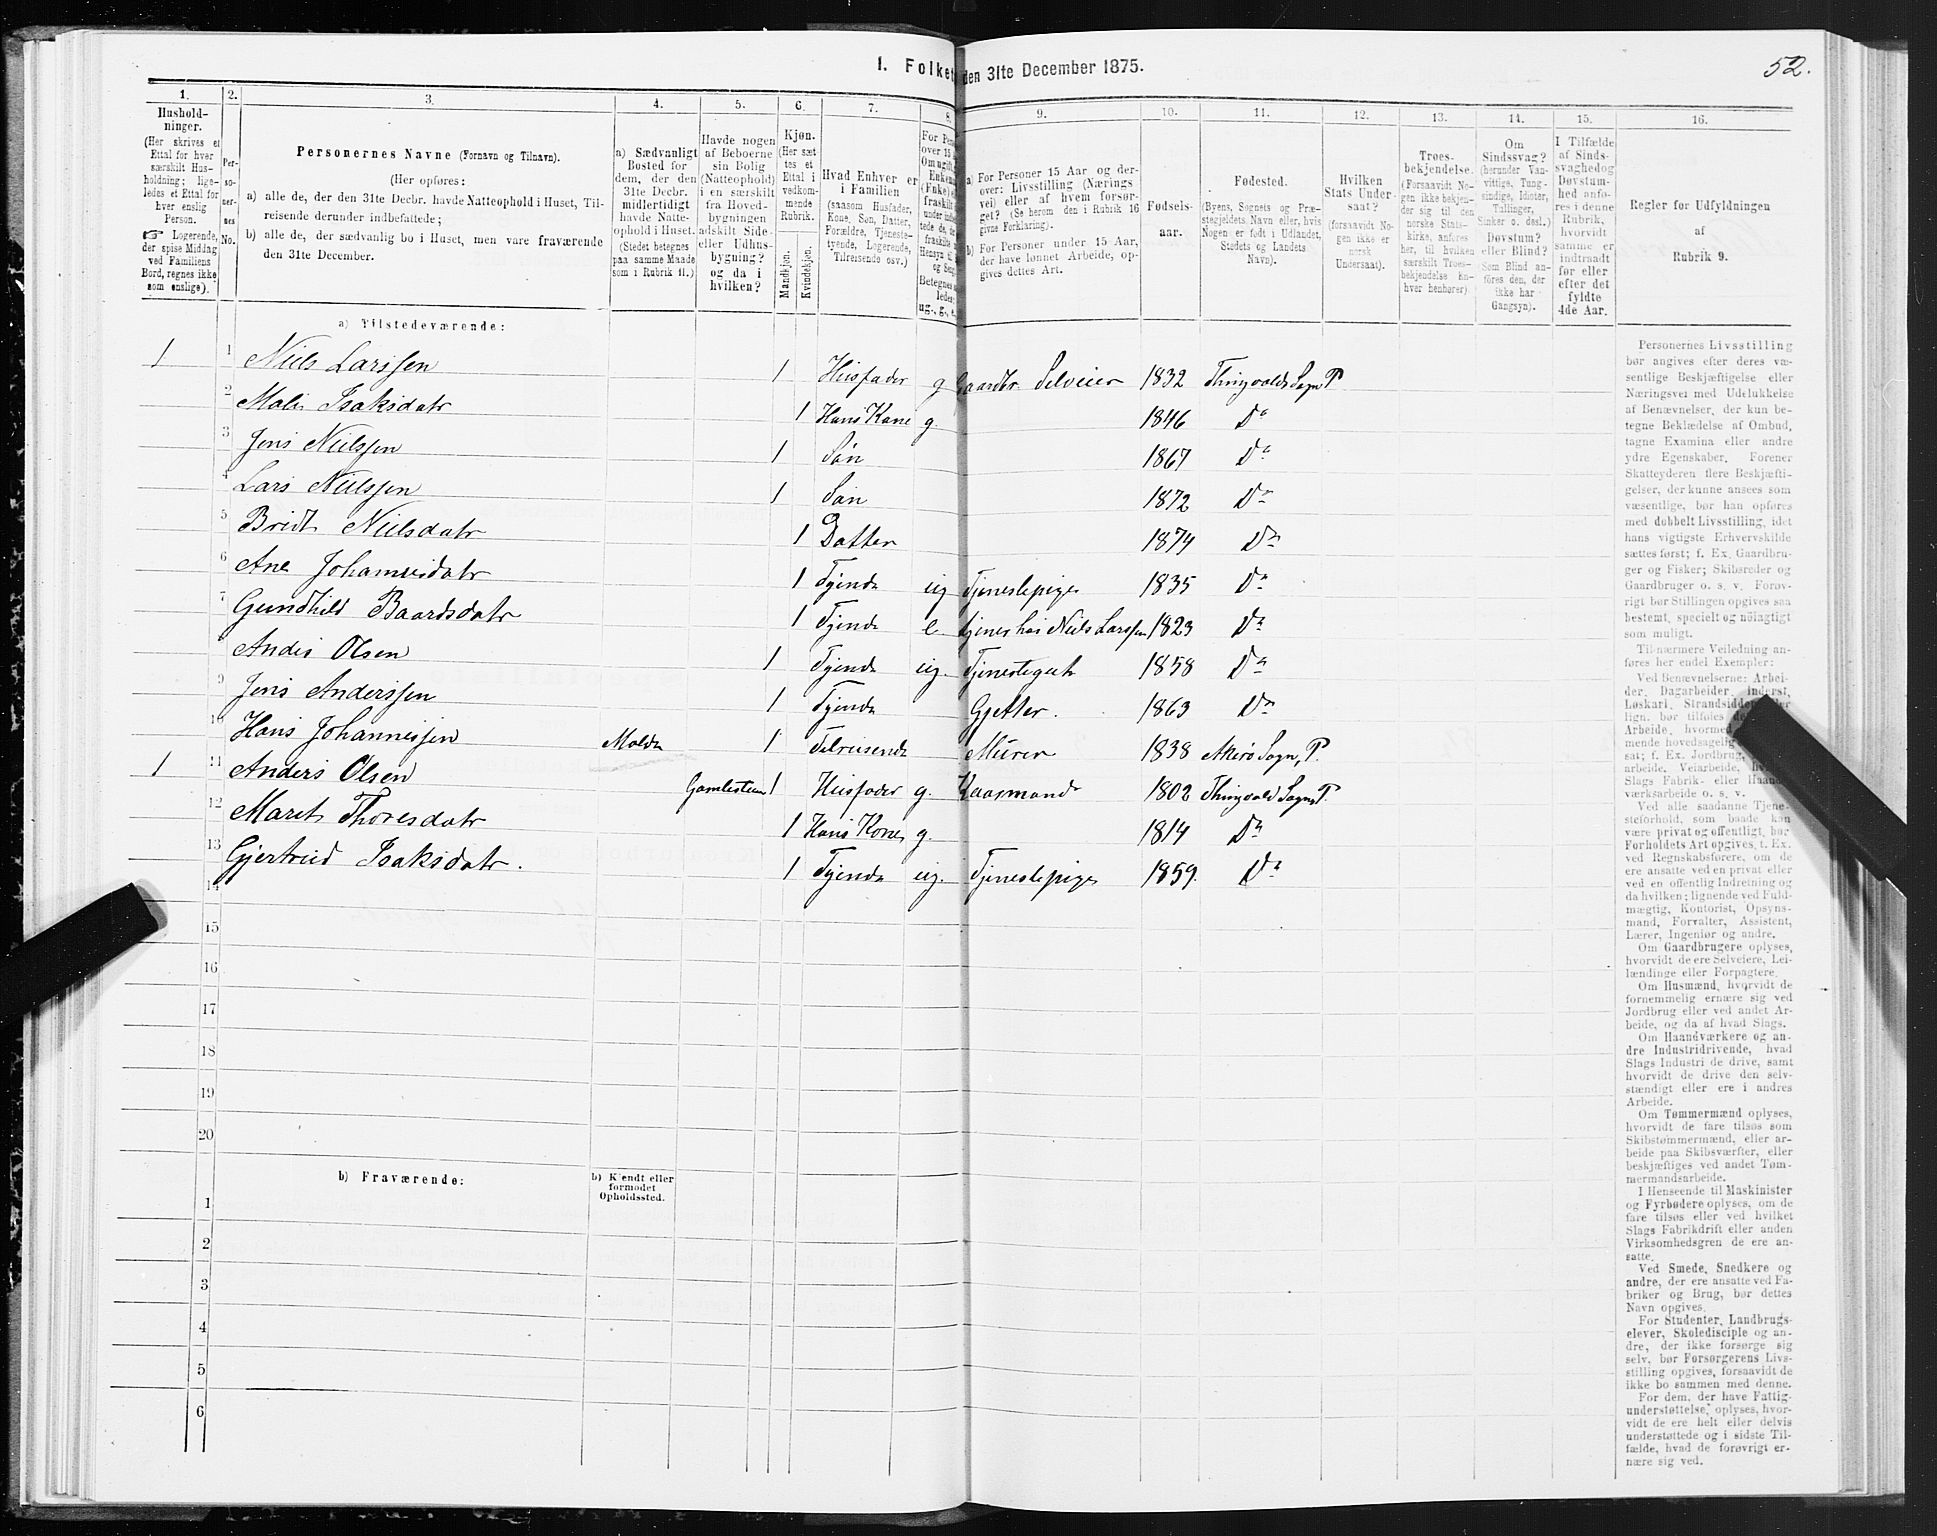 1. Folket den 31te December 1875.
52.
1. 2. 3. 4. 5. 6. 7. 8. 9. 10. 11. 12. 13. 14. 15. 16.
Hushold-
ninger.
(Her skrives et
Ettal for hver
særskilt Hus-
holdning; lige-
ledes et Ettal for
hver enslig
Person.
☞ Logerende,
der spise Middag
ved Familiens
Bord, regnes ikke
som enslige).
Per-
so-
ner-
nes
No.
Personernes Navne (Fornavn og Tilnavn).
(Her opføres:
a) alle de, der den 31te Decbr. havde Natteophold i Huset, Til-
reisende derunder indbefattede;
b) alle de, der sædvanlig bo i Huset, men vare fraværende
den 31te December.
a) Sædvanligt
Bosted for
dem, der den
31te Decbr.
midlertidigt
havde Natte-
ophold i Huset.
(Stedet betegnes
paa samme Maade
som i Rubrik 11.)
Havde nogen
af Beboerne
sin Bolig
(Natteophold)
i en særskilt
fra Hoved-
bygningen
adskilt Side-
eller Udhus-
bygning?
og da i
hvilken?
Kjøn.
(Her sæt
tes et
Ettal i
vedkom-
mende
Rubrik.
Mandkjøn.
Kvindekjøn.
Hvad Enhver er
i Familien
(saasom Husfader,
Kone, Søn, Datter,
Forældre, Tjeneste-
tyende, Logerende,
Tilreisende osv.)
For Pe
over 15
Om ugift,
Enkem
(Enke) e
fraskilt
under indb
tede de, de
fraskilte
Hensyn til
og Sen
Betegnes
ledes:
ug., g., e.,
a) For Personer 15 Aar og der-
over: Livsstilling (Nærings
vei) eller af hvem forsør-
get? (Se herom den i Rubrik 16
givne Forklaring).
b) For Personer under 15 Aar,
der have lønnet Arbeide, op-
gives dettes Art.
Fødsels-
aar.
Fødested.
(Byens, Sognets og Præ-
stegjeldets Navn eller, hvis
Nogen er født i Udlandet,
Stedets og Landets
Navn).
Hvilken
Stats Under-
saat?
(forsaavidt No-
gen ikke er
norsk
Undersaat).
Troes-
bekjendelse.
(Forsaavidt No-
gen ikke bekjen-
der sig til den
norske Stats-
kirke, anføres
her, til hvilken
særskilt Troes-
bekjendelse En-
hver henhører)
Om
Sindssvag?
(herunder Van-
vittige, Tung-
sindige, Idioter,
Tullinger,
Sinker o. desl.)
Døvstum?
eller Blind?
(Som Blind an-
føres den, der
ikke har
Gangsyn).
I Tilfælde
af Sinds-
svaghed og
Døvstum-
hed anfø-
res i denne
Rubrik,
hvorvidt
samme er
indtraadt
før eller
efter det
fyldte
4de Aar.
Regler for Udfyldningen
af
Rubrik 9.
a) Tilstedeværende:
1 1 Niels Larssen 1 Husfader g Gaardbr. Selveier 1832 Thingvolds Sogn P
2 Mali Isaksdatr 1 Hans Kone g. 1846 Do
3 Jens Nielssen 1 Søn 1867 Do
4 Lars Nielssen 1 Søn 1872 Do
5 Bridt Nielsdatr 1 Datter 1874 Do
6 Ane Johannesdatr 1 Tyende ug Tjenestepige 1835 Do
7 Gundhild Baardsdatr 1 Tyende e tjener hos Niels Larssen 1823 Do
Andes Olsen 1 Tyende ug. Tjenestegut 1858 Do
9 Jens Anderssen 1 Tyende Gjetter. 1863 Do
10 Hans Johannessen Molde 1 Tilreisende Murer 1838 Akerø Sogn, P.
1 11 Anders Olsen Gamlestuen 1 Husfader g. Kaarmand 1802 Thingvold Sogns P.
12 Maret Thoresdatr 1 Hans Kone g. 1814 Do
13 Gjertrud Isaksdatr. 1 Tyende ug. Tjenestepige 1859. Do
14
15
16
17
18
19
20
b) Fraværende:
b) Kjendt eller
formodet
Opholdssted.
1
2
3
4
5
6
Personernes Livsstilling
bør angives efter deres væ-
sentlige Beskjæftigelse eller
Næringsvei med Udelukkelse
af Benævnelser, der kun be-
tegne Beklædelse af Ombud,
tagne Examina eller andre
ydre Egenskaber. Forener
Skatteyderen flere Beskjæfti-
gelser, der kunne ansees som
væsentlige, bør han opføres
med dobbelt Livsstilling, idet
hans vigtigste Erhvervskilde
sættes først; f. Ex. Gaardbru-
ger og Fisker; Skibsreder og
Gaardbruger o. s. v. Forøv-
rigt bør Stillingen opgives saa
bestemt, specielt og nøiagtigt
som muligt.
Til nærmere Veiledning an-
føres her endel Exempler:
Ved Benævnelserne: Arbei-
der, Dagarbeider, Inderst,
Løskari, Strandsidder eller
lign. bør tilføies de
Arbeide, hvorme
mende hovedsagelig
sat; f. Ex. Jordbrug,
arbeide, Veiarbeide,
Slags Fabrik- eller Haand-
værksarbeide o. s. v.
Ved alle saadanne Tjene-
steforhold, som baade kan
være privat og offentligt, bør
Forholdets Art opgives, f. Ex.
ved Regnskabsførere, om de
ere ansatte ved en privat eller
ved en offentlig Indretning og
da hvilken; lignende ved Fuld-
mægtig, Kontorist, Opsyns-
mand, Forvalter, Assistent,
Lærer, Ingeniør og andre.
Om Gaardbrugere oplyses,
hvorvidt de ere Selveiere, Lei-
lændinge eller Forpagtere.
Om Husmænd, hvorvidt de
fornemmelig ernære sig ved
Jordbrug eller ved andet Ar-
beide, og da af hvad Slags.
Om Haandværkere og an-
dre Industridrivende, hvad
Slags Industri de drive, samt
hvorvidt de drive den selv-
stændigt eller ere i andres
Arbeide.
Om Tømmermænd oplyses,
hvorvidt de fare tilsøs som
Skibstømmermænd, eller ar-
beide paa Skibsværfter, eller
beskjæftiges ved andet Tøm-
mermandsarbeide.
I Henseende til Maskinister
og Fyrbødere oplyses, om de
fare tilsøs eller ved hvilket
Slags Fabrikdrift eller anden
Virksomhedsgren de ere an-
satte.
Ved Smede, Snedkere og
andre, der ere ansatte ved Fa-
briker og Brug, bør dettes
Navn opgives.
For Studenter, Landbrugs-
elever, Skoledisciple og an-
dre, der ikke forsørge sig
selv, bør Forsørgerens Livs-
stilling opgives, forsaavidt de
ikke bo sammen med denne.
For dem, der have Fattig-
understøttelse, oplyses, hvor-
vidt de ere helt eller delvis
understøttede og i sidste Til-
fælde, hvad de forøvrigt er-
nære sig ved.